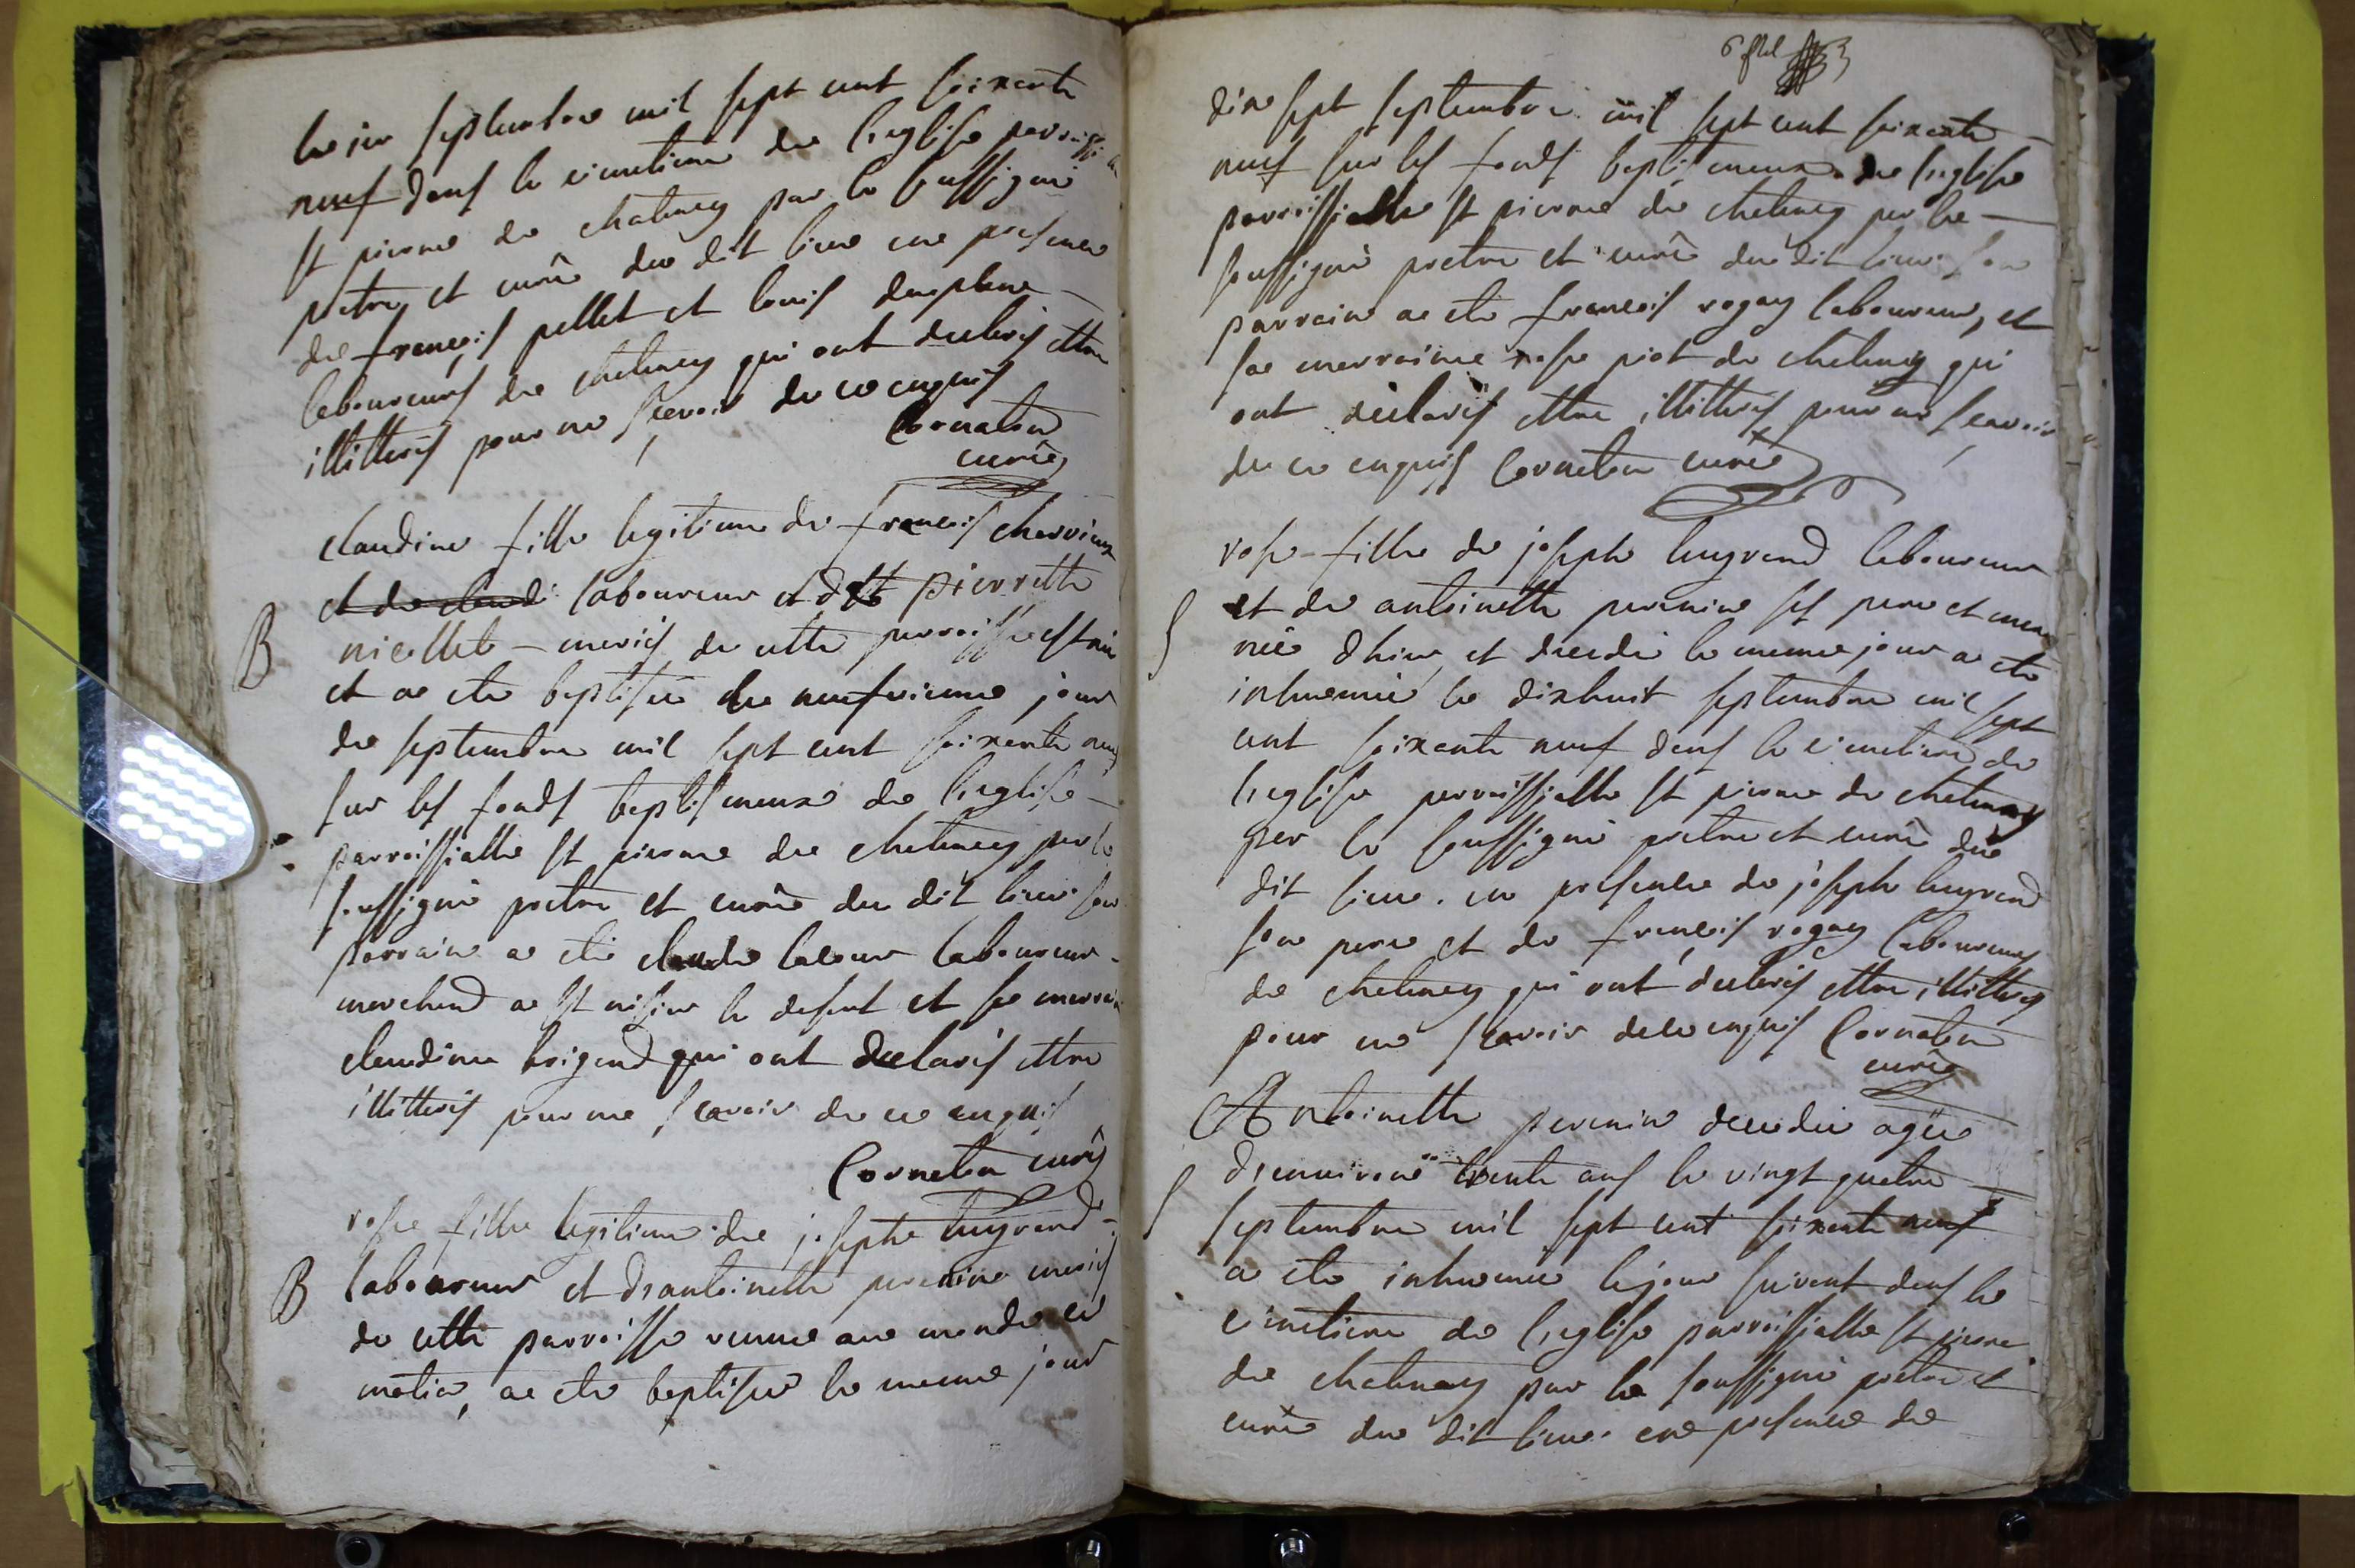 septembre mil sept cent soixante
neuf dans le cimetiere de l'eglise parroissialle
st pierre de chatenay par le soussigné
pretre et curé du dit lieu en presence
de françois pellet et louis
laboureurs de chatenay qui ont declarés ettre
illitterés pour ne sçavoir de ce enquis
Cornaton
curé
claudine fille legitime de françois chervieux
et de claudi laboureur et de pierrette
nicollet mariés de cette parroisse est née
et a ete baptisée le neufvieme jour
de septembre mil sept cent soixante neuf
sur les fonds baptismaux de l'eglise
parroissialle st pierre de chatenay par le
soussigné pretre et curé du dit lieu son
parrain a eté claude lacour laboureur
marchand a st nisier le desert et sa marraine
claudine brigand qui ont declarés ettre
illitterés pour ne sçavoir de ce enquis
Cornaton curé
B
rose fille legitime de joseph lugrand
laboureur et d'antoinette perenin mariés
B
de cette parroisse venue au monde ce
matin, a ete baptisée le meme jour
dix sept septembre mil sept cent soixante
neuf sur les fonds baptismaux de l'eglise
parroissialle st pierre de chatenay par le
soussigné pretre et curé du dit lieu son
parrain a ete françois rogay laboureur, et
sa marraine rose piot de chatenay qui
ont declarés ettre illitterés pour ne sçavoir
de ce enquis Cornaton curé
rose fille de joseph lugrand laboureur
et de antoinette perenin ses pere et mere
S
née d'hier, et decedée le meme jour a ete
inhumée le dixhuit septembre mil sept
cent soixante neuf dans le cimetiere de
l'eglise parroissialle st pierre de chatenay
par le soussigné pretre et curé du
dit lieu. en presence de joseph lugrand
son pere et de françois rogay laboureurs
de chatenay qui ont declarés ettre illitterés
pour ne sçavoir de ce enquis Cornaton
curé
Antoinette perenin decedée agée
d'environ trente ans le vingt quatre
S
septembre mil sept cent soixante neuf
a ete inhumée le jour suivant dans le
cimetiere de l'eglise parroissialle st pierre
de chatenay par le soussigné pretre et
curé du dit lieu. en presence de